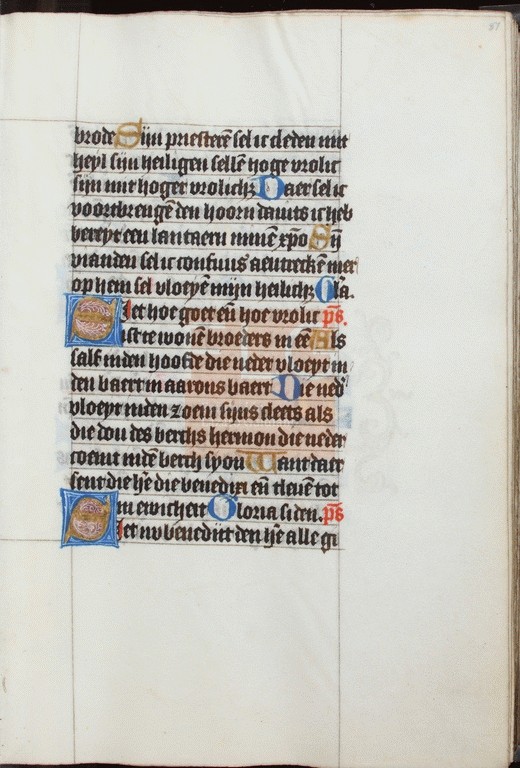 57
brode Sijn priesterē sel ic cleden mit
heyl sijn heiligen sellē hoge vrolic
sijn mit hoger vrolichz Daer sel ic
voortbrengē den hoorn dauits ic heb
bereyt een lantaern minē xpo Sijn
vianden sel ic confuus aentreckē mer
op hem sel vloeyē mijn heilichz Gla.
Siet hoe goet eñ hoe vrolic ps.
ist te wonē broeders in eē Als
salf inden hoofde die neder vloeyt in
den baert in aarons baert Die ned
vloeyt inden zoem sijns cleets als
die dou des berchs hermon die neder
coemt indē berch syon Want daer
sent die hē die benedixi eñ tleuē tot
in ewicheit Gloria si den. ps
Siet nv benedijt den hē alle gi